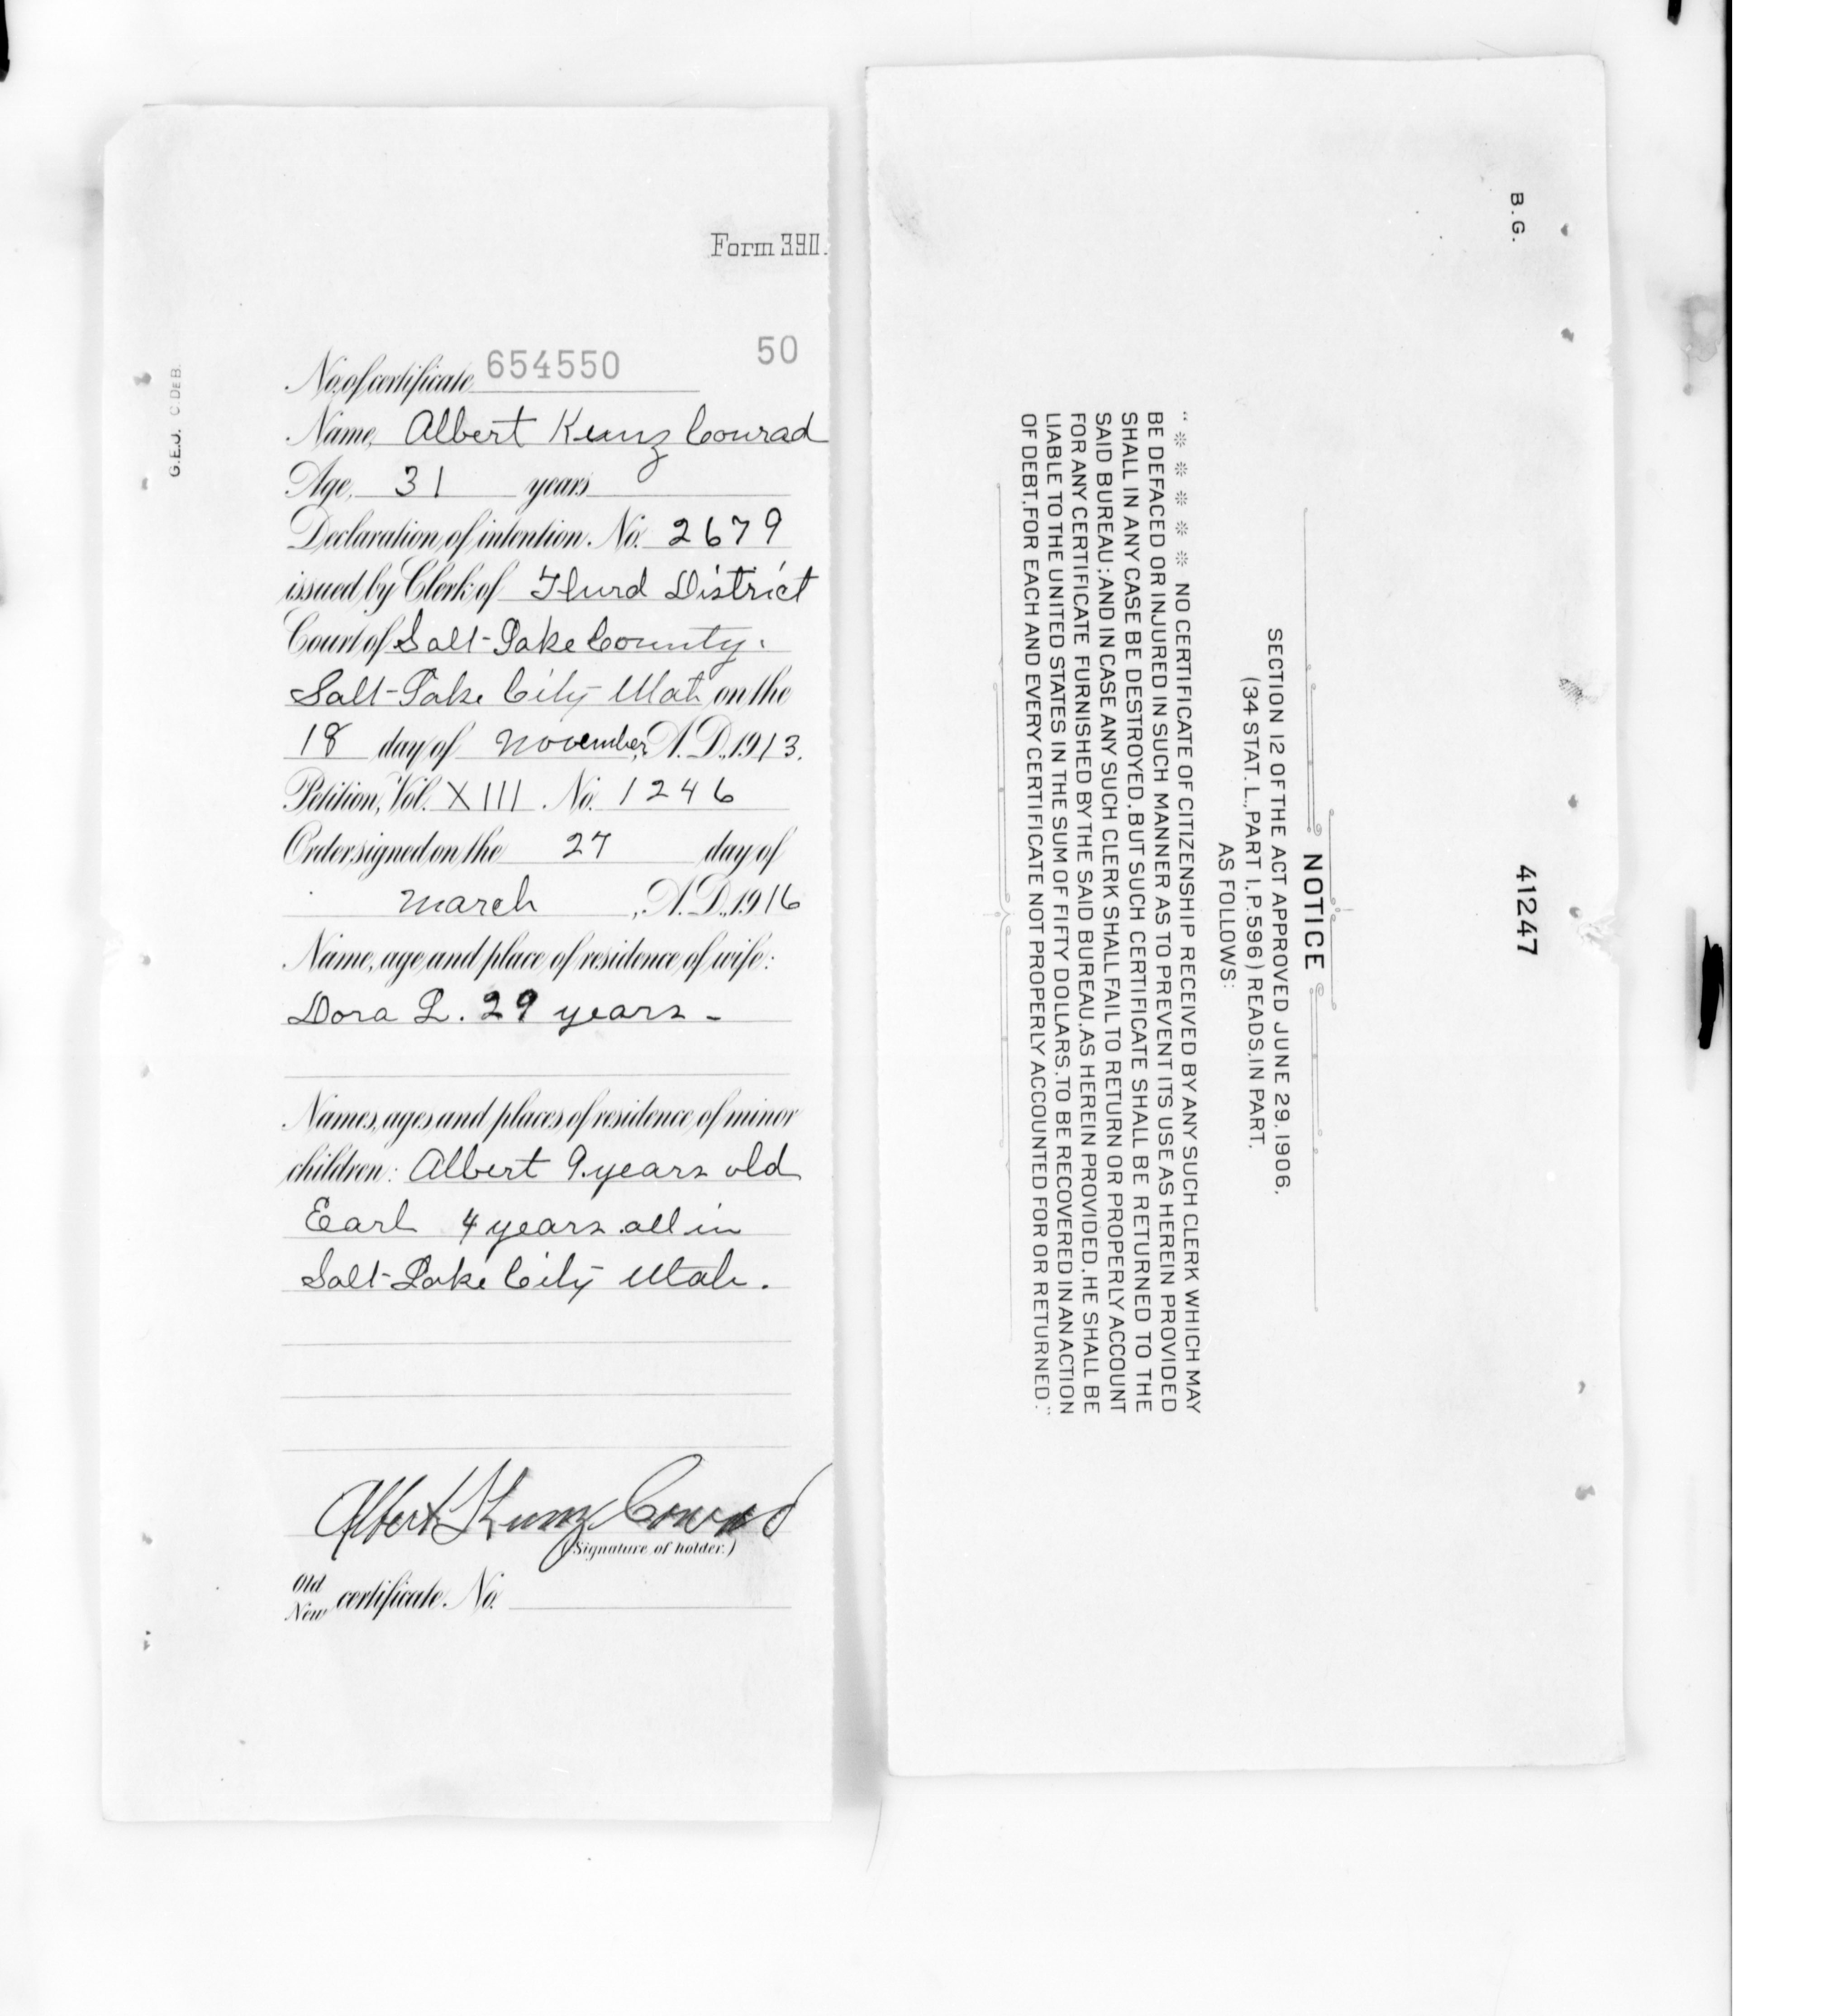 Form 390.
G.E.J. C DEB.
No. of certificate 654550 50
Name, Albert Kunz Conrad
Age, 31 years
Declaration of intention. No. 2679
issued by Clerk of Third District
Court of Salt-Lake County.
Salt-Lake City Utah on the
18 day of November, A.D., 1913.
Petition, Vol. XIII. No. 1246
Order signed on the 27 day of
March, A.D., 1916
Name, age and place of residence of wife:
Dora L. 29 years -
Names, ages and places of residence of minor
children: Albert 9 years old
Earl 4 years all in
Salt-Lake City Utah.
Albert Kunz Conrad
(Signature of holder.)
Old
New certificate. No.
B.G.
41247
NOTICE
SECTION 12 OF THE ACT APPROVED JUNE 29, 1906,
(34 STAT. L., PART I, P. 596) READS, IN PART,
AS FOLLOWS:
"* * * * * NO CERTIFICATE OF CITIZENSHIP RECEIVED BY ANY SUCH CLERK WHICH MAY
BE DEFACED OR INJURED IN SUCH MANNER AS TO PREVENT ITS USE AS HEREIN PROVIDED
SHALL IN ANY CASE BE DESTROYED, BUT SUCH CERTIFICATE SHALL BE RETURNED TO THE
SAID BUREAU; AND IN CASE ANY SUCH CLERK SHALL FAIL TO RETURN OR PROPERLY ACCOUNT
FOR ANY CERTIFICATE FURNISHED BY THE SAID BUREAU, AS HEREIN PROVIDED, HE SHALL BE
LIABLE TO THE UNITED STATES IN THE SUM OF FIFTY DOLLARS, TO BE RECOVERED IN AN ACTION
OF DEBT, FOR EACH AND EVERY CERTIFICATE NOT PROPERLY ACCOUNTED FOR OR RETURNED."